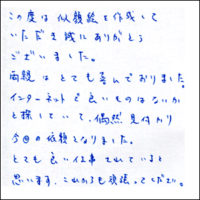 この度は似顔絵を作成して
いただき誠にありがとう
ございました。
両親はとても喜んでおりました。
インターネットで良いものはないか
と探していて、偶然見付かり
今回の依頼となりました。
とても良い仕事されていると
思います。これからも頑張ってください。